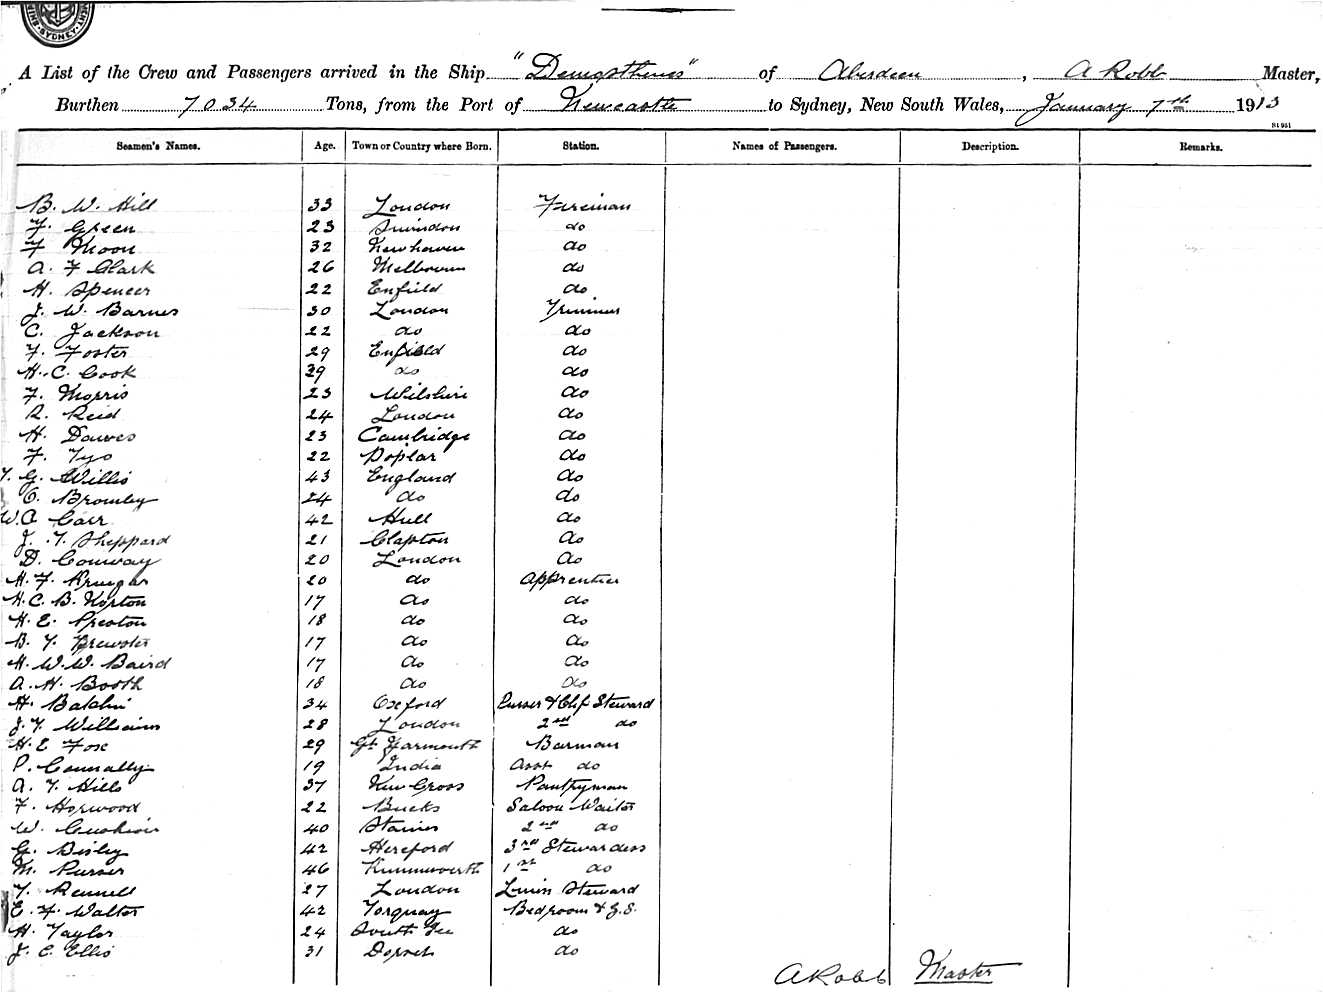 SYDNEY
A List of the Crew and Passengers arrived in the Ship "Demosthenes" of Aberdeen, A Robb Master,
Burthen 7034 Tons, from the Port of Newcastle to Sydney, New South Wales, January 7th 1913
St 951
Seamen's Names. Age. Town or Country where Born. Station. Names of Passengers. Description. Remarks.
B. W. Hill 33 London Fireman
F. Green 23 Swindon do
F Moon 32 Newhaven do
A. F Clark 26 Melbourne do
H. Spencer 22 Enfield do
J. W. Barnes 30 London Trimmer
C. Jackson 22 do do
F. Foster 29 Enfield do
H. C. Cook 39 do do
F. Morris 23 Wilshire do
R. Reid 24 London do
H. Dawes 23 Cambridge do
F. Tyo 22 Poplar do
T. G. Willis 43 England do
C. Bromley 24 do do
W. A Carr 42 Hull do
J. T. Sheppard 21 Clapton do
D. Conway 20 London do
H. F. Kruger 20 do Apprentice
H. C. B. Norton 17 do do
H. E. Preston 18 do do
B. T. Brewster 17 do do
H. W. W. Baird 17 do do
A. H. Booth 18 do do
H. Balchin 34 Oxford Purser & Chf Steward
J. T. William 28 London 2nd do
H. E Fox 29 Gt. Yarmouth Barman
P. Connally 19 India Asst do
A. T. Hills 37 New Cross Pantryman
F. Horwood 22 Bucks Saloon Waiter
W. 40 Staines 2nd do
G. Bisley 42 Hereford 3rd Stewardess
M. Purser 46 1st do
T. Rennell 27 London Linen Steward
E. H. Walter 42 Torquay Bedroom & G.S.
H. Taylor 24 South do
J. C. Ellis 31 Dorset do
A Robb Master